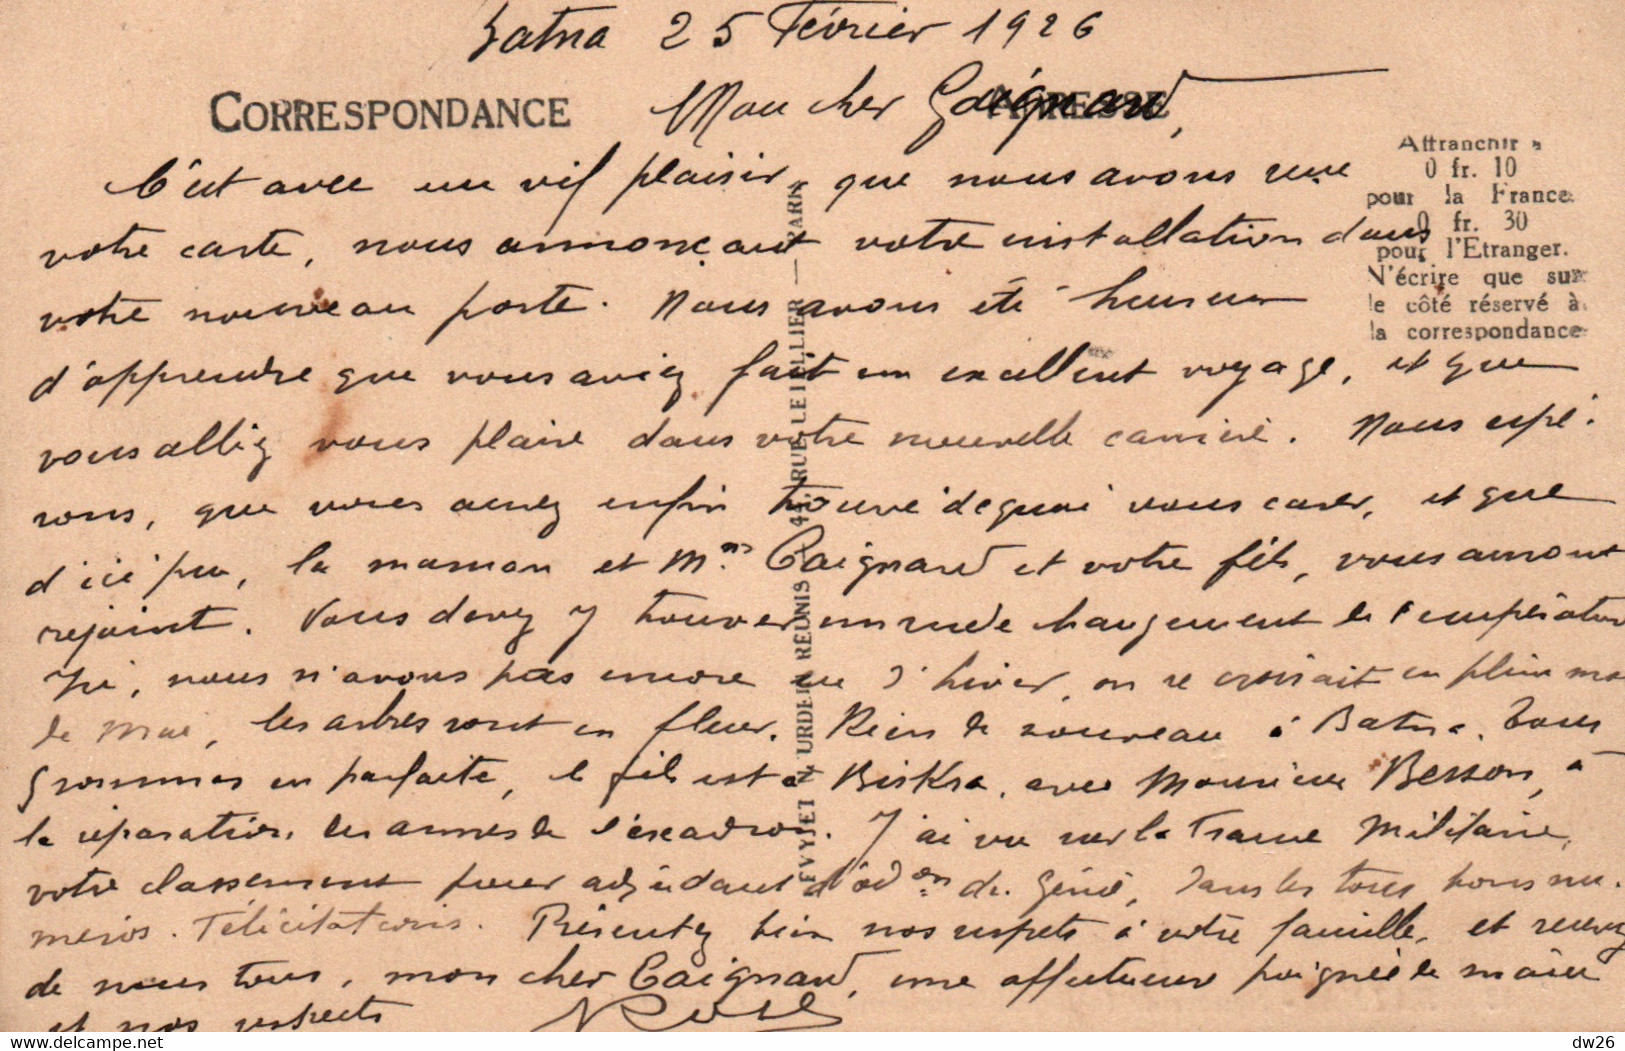 Batna 25 Février 1926
CORRESPONDANCE
Mon cher Gaignard,
C'est avec un vif plaisir, que nous avons reçu
votre carte, nous annonçant votre installation dans
votre nouveau poste. Nous avons été heureux
d'apprendre que vous aviez fait un excellent voyage, et que
vous alliez vous plaire dans votre nouvelle caserne. Nous espé-
rons, que vous aurez enfin trouvé de quoi vous caser, et que
d'ici peu, la maman et Mme Gaignard et votre fils, vous auront
rejoint. Vous devez y trouver un rude changement de température
Ici, nous n'avons pas encore eu d'hiver, on se croirait en plein mois
de Mai, les arbres sont en fleur. Rien de nouveau à Batna. Tous
sommes en parfaite, le fils est à Biskra, avec Monsieur Besson, à
la réparation, des armes de l'escadron. J'ai vu sur la France Militaire,
votre classement pour adjudant d'adon du Génie, dans les tous bons nu-
méros. Félicitations. Présentez bien nos respects à votre famille, et recevez
de nous tous, mon cher Gaignard, une affectueuse poignée de main
et nos respects
Affranchir à
0 fr. 10
pour la France
0 fr. 30
pour l'Etranger.
N'écrire que sur
le côté réservé à
la correspondance
LEVY ET NEURDEIN REUNIS 44, RUE LETELLIER — PARIS
www.delcampe.net
dw26